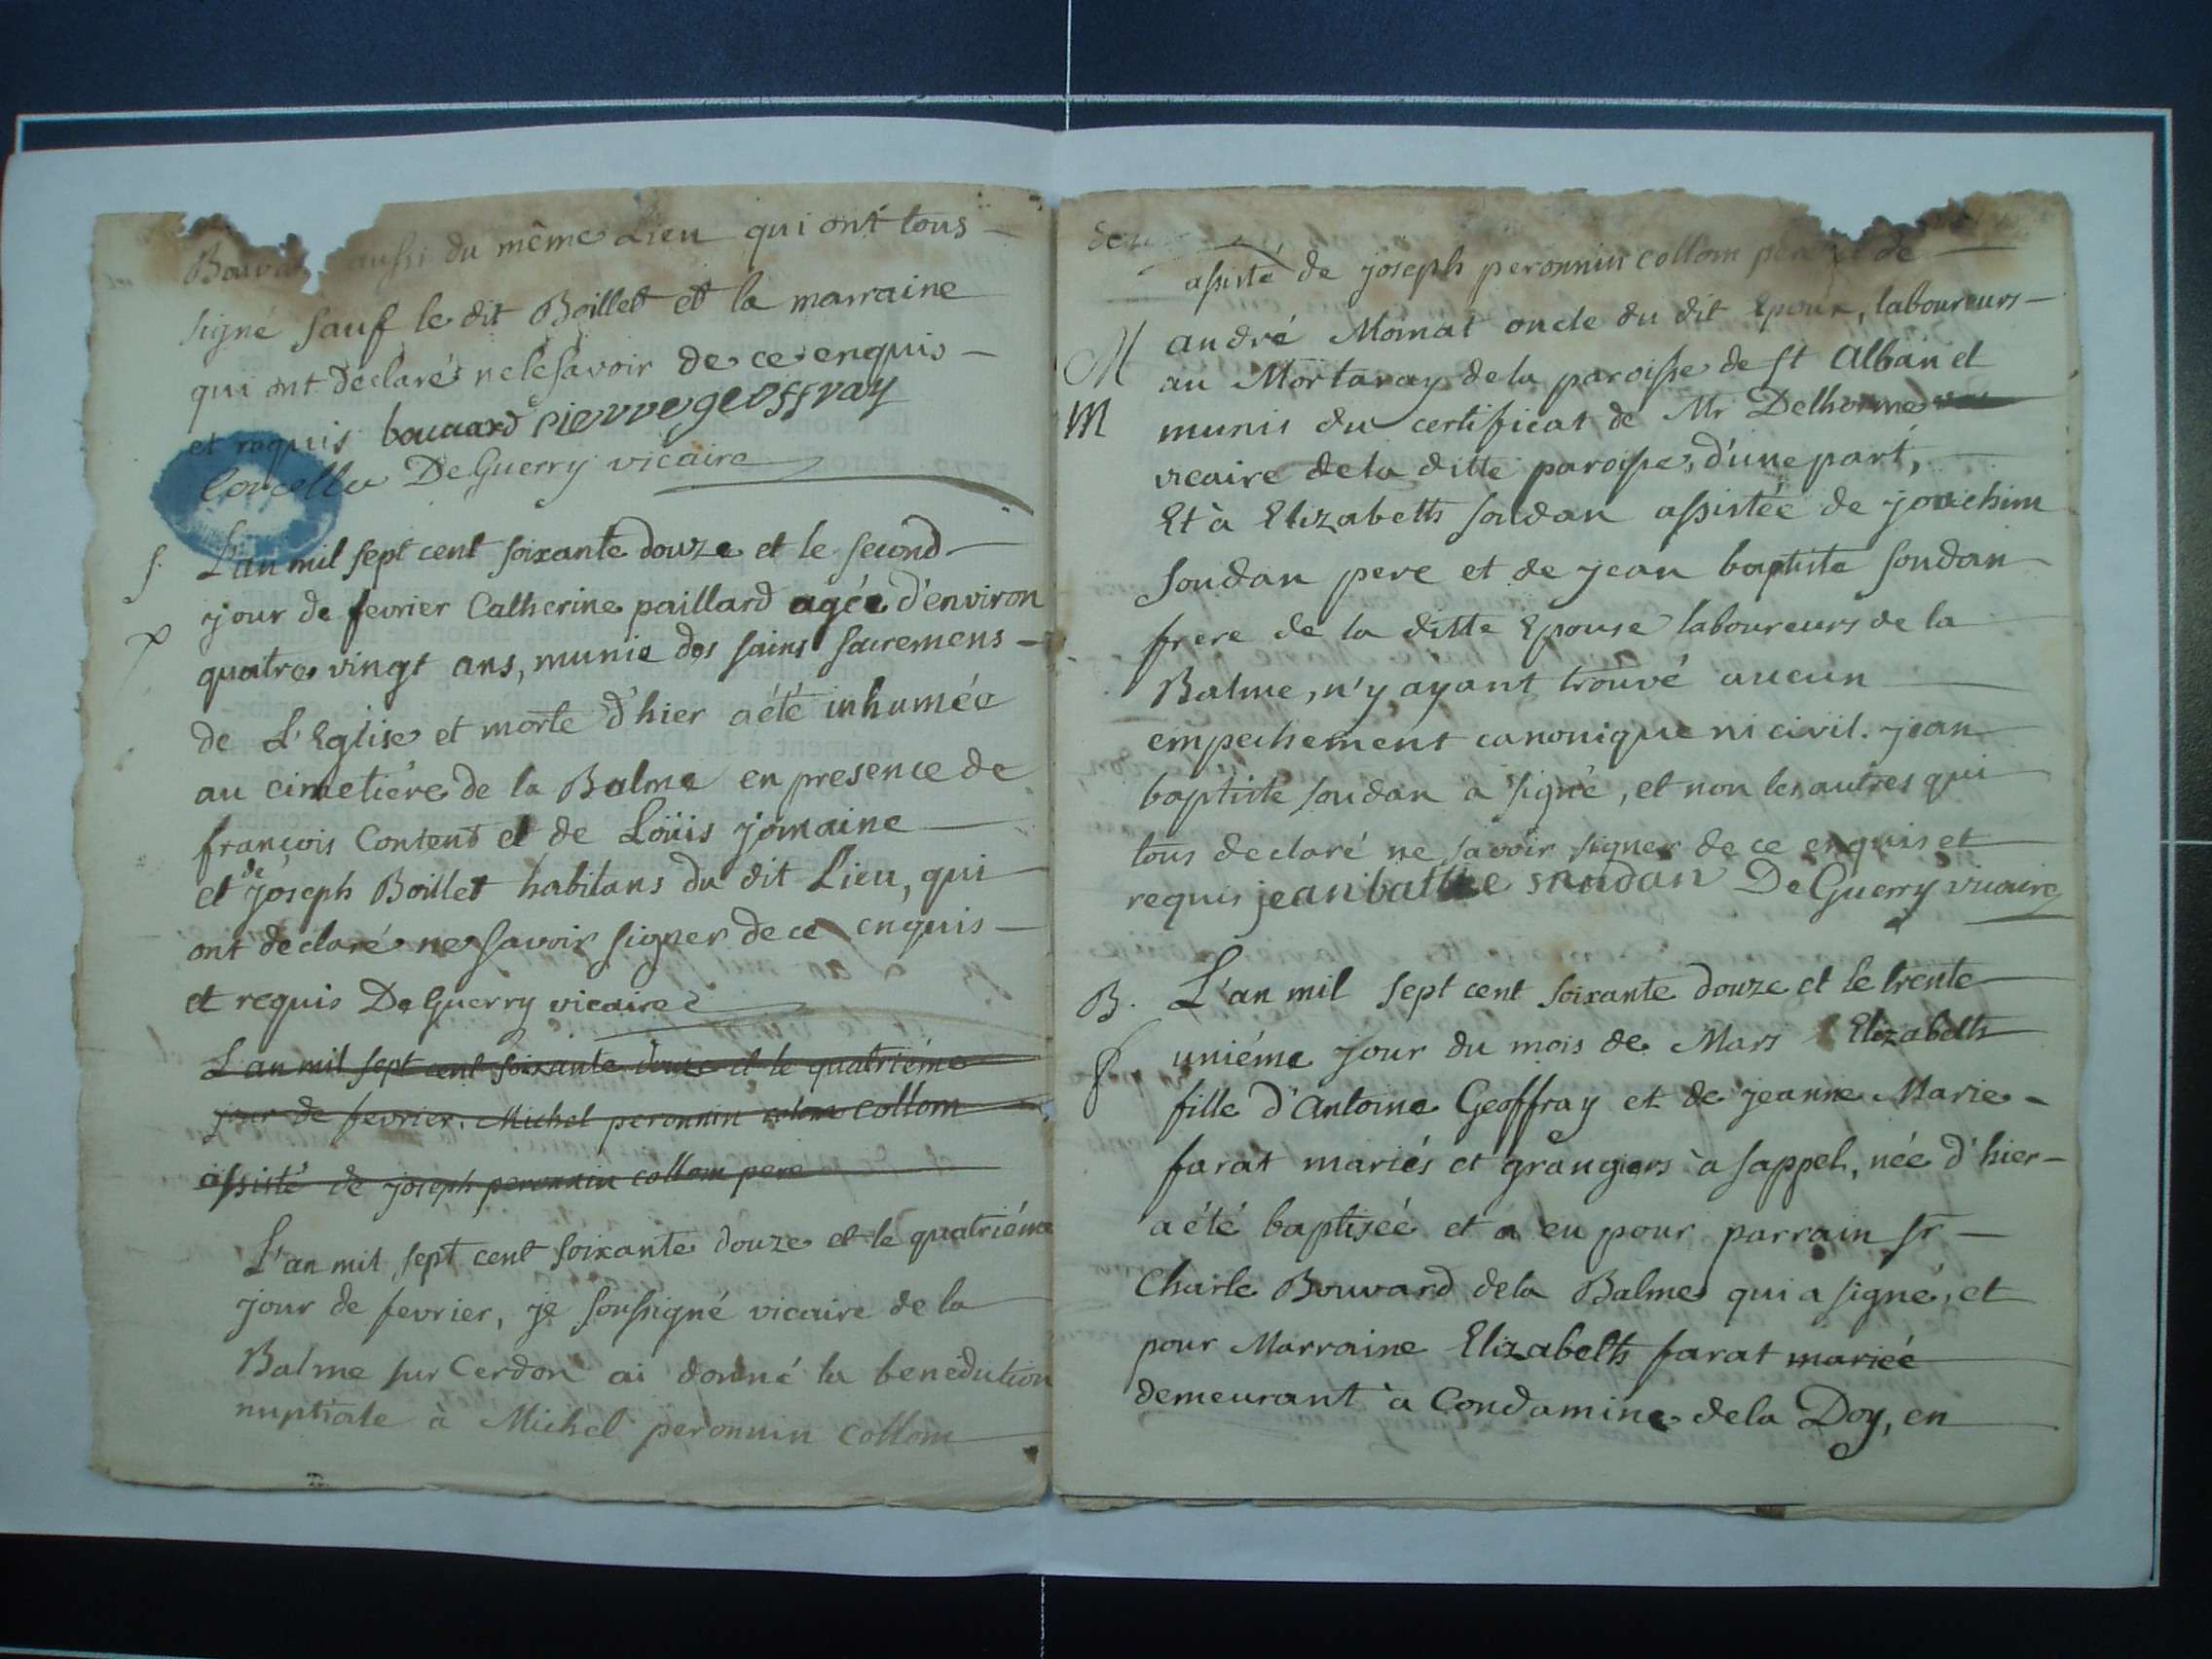 aussi du même Lieu qui ont tous
signé sauf le dit Boillet et la marraine
qui ont declaré ne le savoir de ce enquis
et requis bouuard pierre geoffray
Corcellu DeGuerry vicaire
s. L'an mil sept cent soixante douze et le second
jour de fevrier Catherine paillard agée d'environ
quatre vingt ans, munie des sains sacremens
de L'Eglise et morte d'hier a été inhumée
au cimetiére de la Balme en presence de
françois Content et de Loüis jomaine
et de joseph Boillet habitans du dit Lieu, qui
ont declaré ne savoir signer de ce enquis
et requis DeGuerry vicaire
L'an mil sept cent soixante douze et le quatriéme
jour de fevrier. Michel peronnin collom
assisté de joseph peronnin collom pere
L'an mil sept cent soixante douze et le quatriéme
jour de fevrier, je soussigné vicaire de la
Balme sur Cerdon ai donné la benediction
nuptiale à Michel peronnin collom
assisté de joseph peronnin collom pere et de
M andré Momat oncle du dit Epoux, laboureurs
au Mortaray de la paroisse de st Alban et
M munis du certificat de Mr Delhorme
vicaire de la ditte paroisse, d'une part,
Et à Elizabeth soudan assistée de joachim
soudan pere et de jean baptiste soudan
frere de la ditte Epouse laboureurs de la
Balme, n'y ayant trouvé aucun
empechement canonique ni civil. jean
baptiste soudan a signé, et non les autres qui
tous declaré ne savoir signer de ce enquis et
requis DeGuerry vicaire
B. L'an mil sept cent soixante douze et le trente
uniéme jour du mois de Mars Elizabeth
fille d'Antoine Geoffray et de jeanne Marie
farat mariés et grangers à sappel, née d'hier
a été baptiséé et a eu pour parrain sr
Charle Bouvard de la Balme qui a signé, et
pour Marraine Elizabeth farat mariée
demeurant à Condamine de la Doy, en